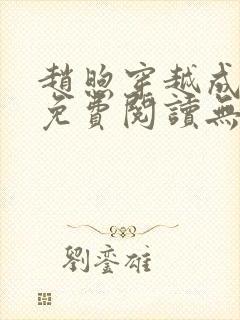 趙煦穿越成
免費閱讀無
劉鑾雄